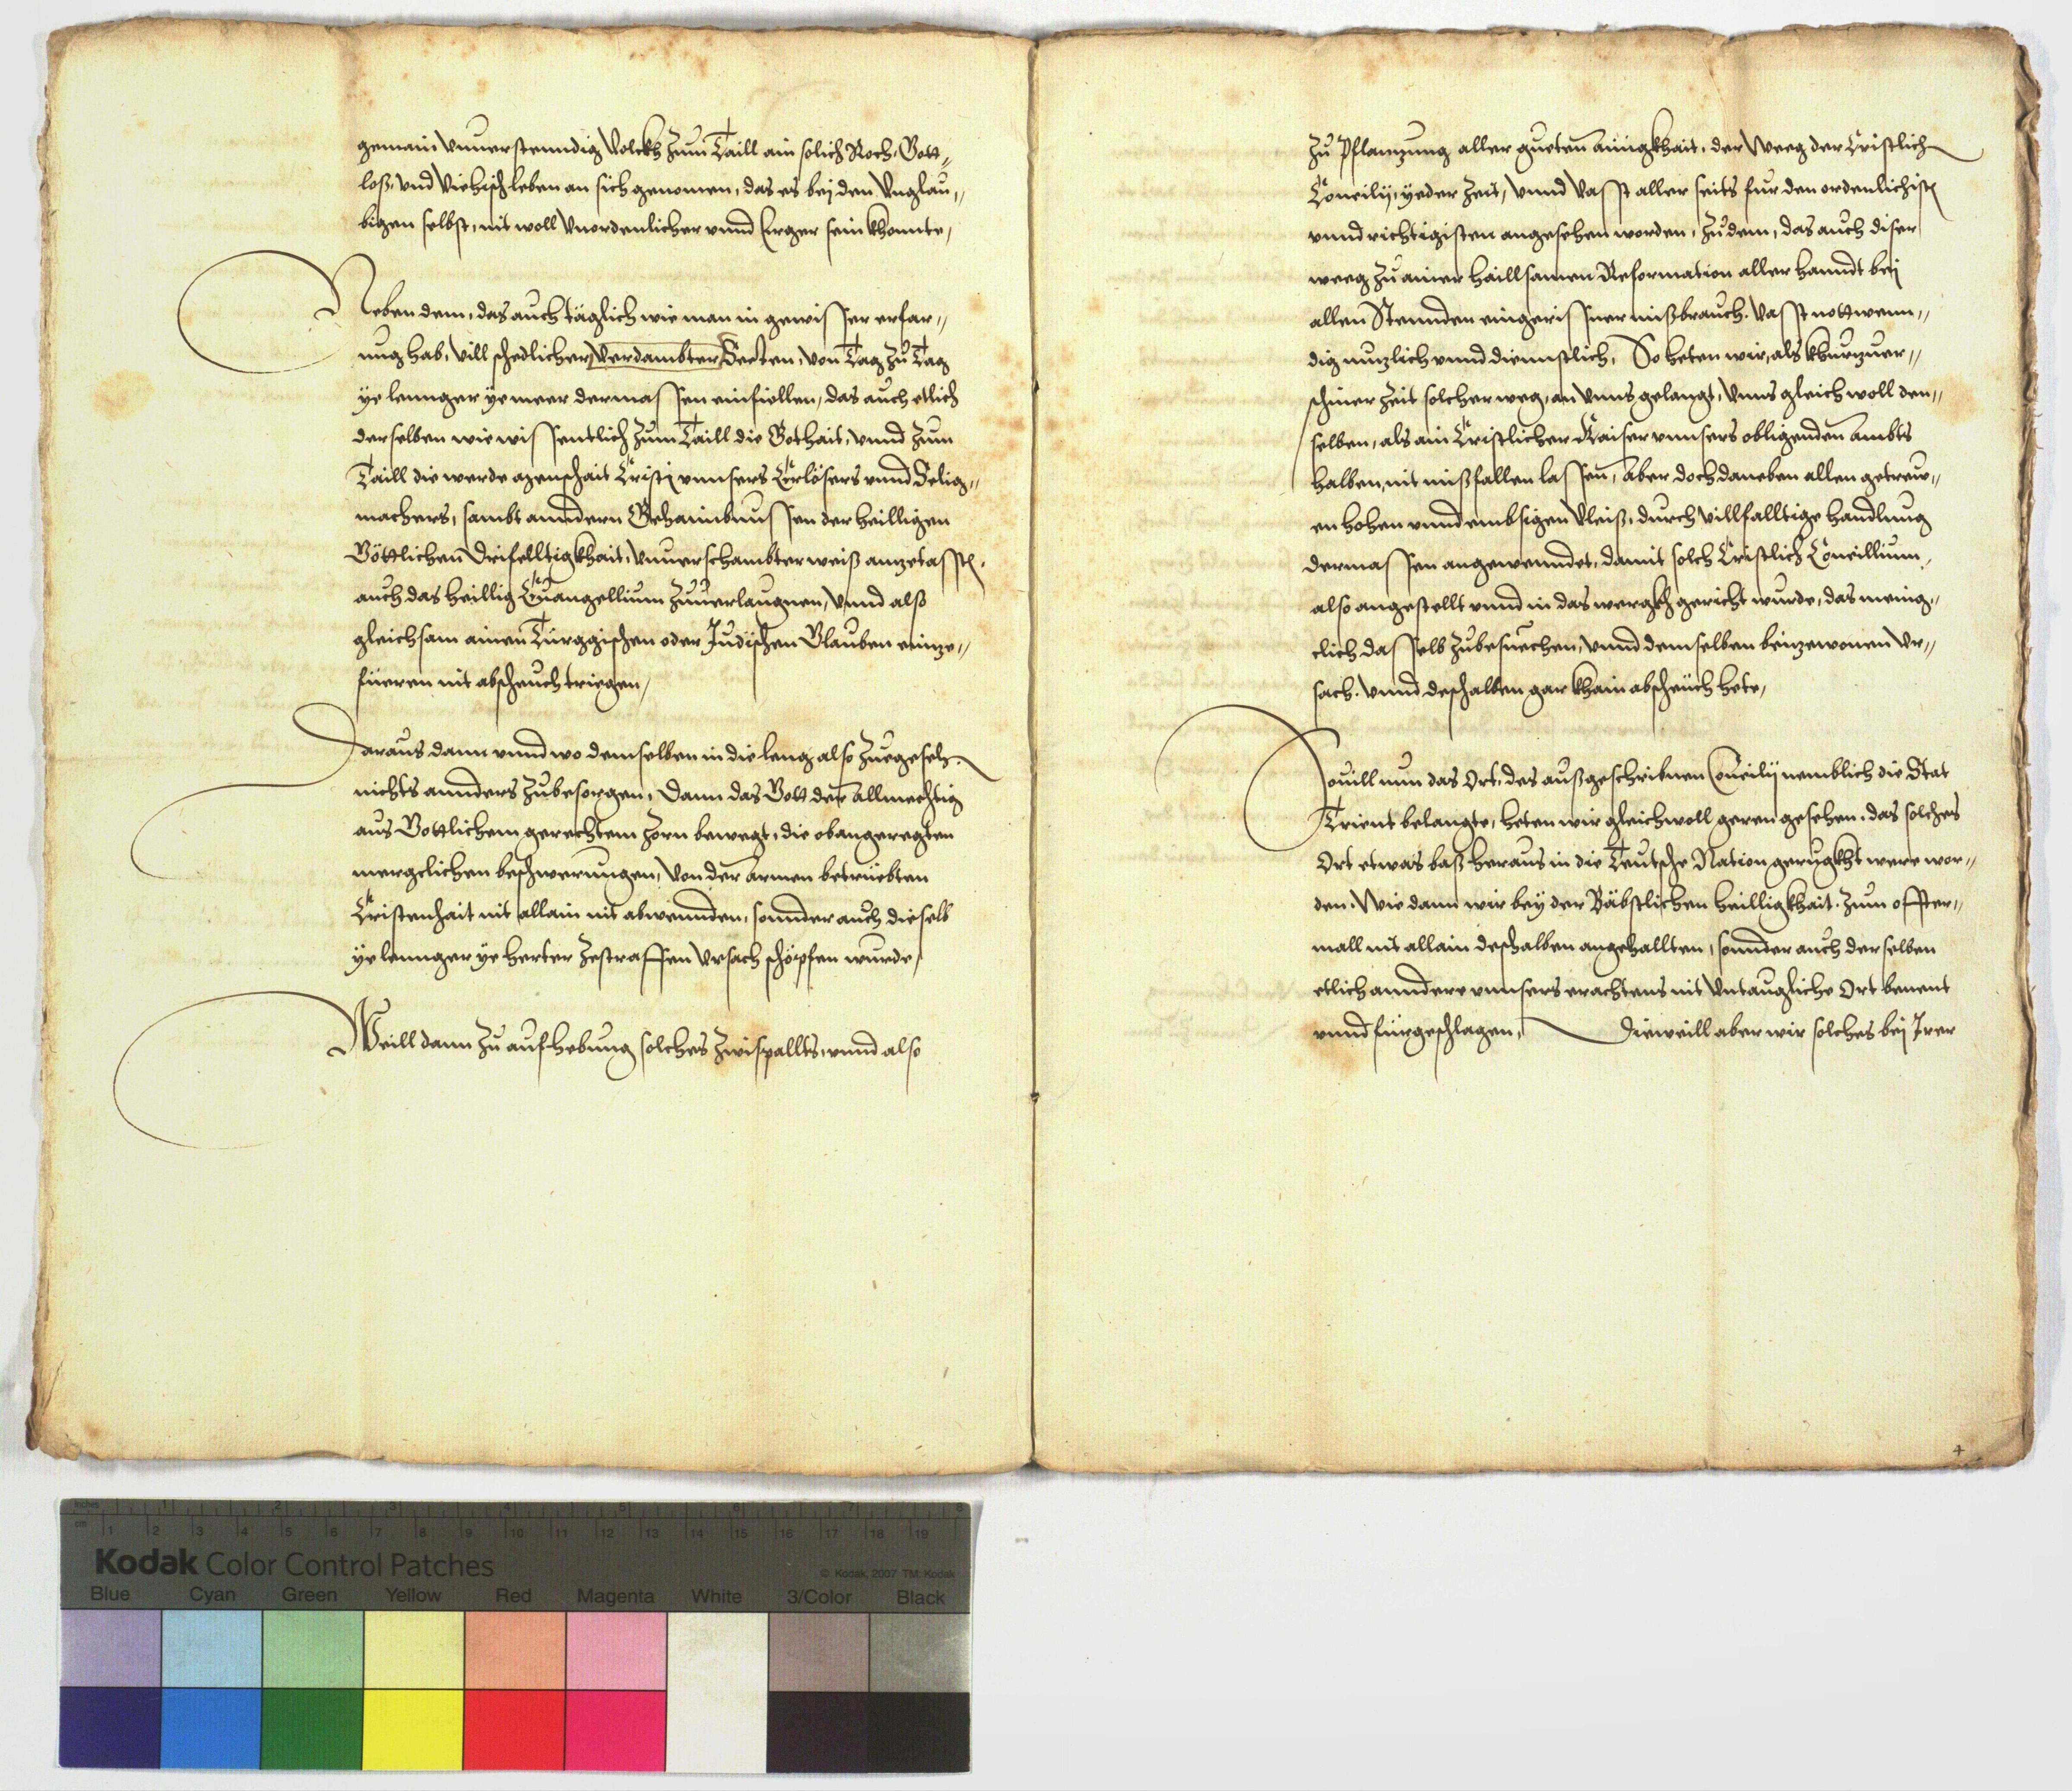 gemain Vnuerstenndig Volckh zum Taill ain solich Roch, Gott„
loß, vnd Viehisch leben an sich genomen, das es bej den Vnglau„
bigen selbst, nit woll Vnordenlicher vnnd Erger sein khonnte,
Neben dem, das auch täglich wie man in gewisser erfar„
ung hab, Vill schedlicher, Verdambter Secten, von Tag zu Tag
ye lennger ye meer dermassen einfiellen, das auch etlich
derselben wie wissentlich zum Taill die Gothait, vnnd zum
Taill die werde agenschait Cristj vnnsers Erlösers vnnd Selig„
machers, sambt anndern Gehaimbnussen der heilligen
Göttlichen Drifelltigkhait, Vnuerschambter weiß anzetassten,
auch das heillig Euangellium zuuerlaugnen, vnnd also
gleichsam ainen Türggischen oder Judischen Glauben einze„
füeren nit abscheuch triegen,
Daraus dann vnnd wo demselben in die leng also zuegesehen
nichts annders zubesorgen, Dann das Gott der Allmechtig
aus Gottlichem gerechtem Zorn bewegt, die obangeregten
mergclichen beschwerungen, Von der armen betrüebten
Cristenhait nit allain nit abwennden, sonnder auch dieselb
ye lennger ye herter zestraffen Vrsach schöpfen wurde,
Weill dann zu aufhebung solches zwispallts, vnnd also
zu Pflanzung aller gueten ainigkhait, der Weeg der Cristlichen
Concilij, yeder Zeit, vnnd Vasst aller seits fur den ordenlichisten
vnnd richtigisten angesehen worden, Zudem, das auch diser
weeg zu ainer haillsamen Reformation aller hanndt bej
allen Stennden eingerissner mißbrauch, Vasst nottwenn„
dig nuzlich vnnd diennstlich, So heten wir, als khurzuer„
schiner Zeit solcher weg, an vnns gelangt, Vnns gleichwoll den„
selben, als ain Cristlicher Kaiser vnnsers obligenden ambts
halben, nit mißfallen lassen, Aber doch daneben allen getrew„
en hohen vnnd embsigen Vleiß, durch villfalltige handlung
dermassen angewenndet, damit solch Cristlich Concillium,
also angestellt vnnd in das wergkh gericht wurde, das menig„
clich dasselb zubesuechen, vnnd demselben beizewonen Vr„
sach, vnnd deshalben gar khain abscheüch hete,
Souill nun das Ort, des außgeschribnen Concilij nemblich die Stat
Trient belangte, heten wir gleichwoll geren gesehen, das solches
Ort etwas baß heraus in die Teutsche Nation gerugkht were wor„
den, Wie dann wir bey der Bäbstlichen heilligkhait, zum offter„
mall nit allain deshalben angehallten, sonnder auch derselben
etlich anndere vnnsers erachtens nit Vntaugliche Ort benent
vnnd fürgeschlagen, Dieweill aber wir solches bej Irer
4
Kodak Color Control Patches
© Kodak, 2007 TM: Kodak
Blue Cyan Green Yellow Red Magenta White 3/Color Black